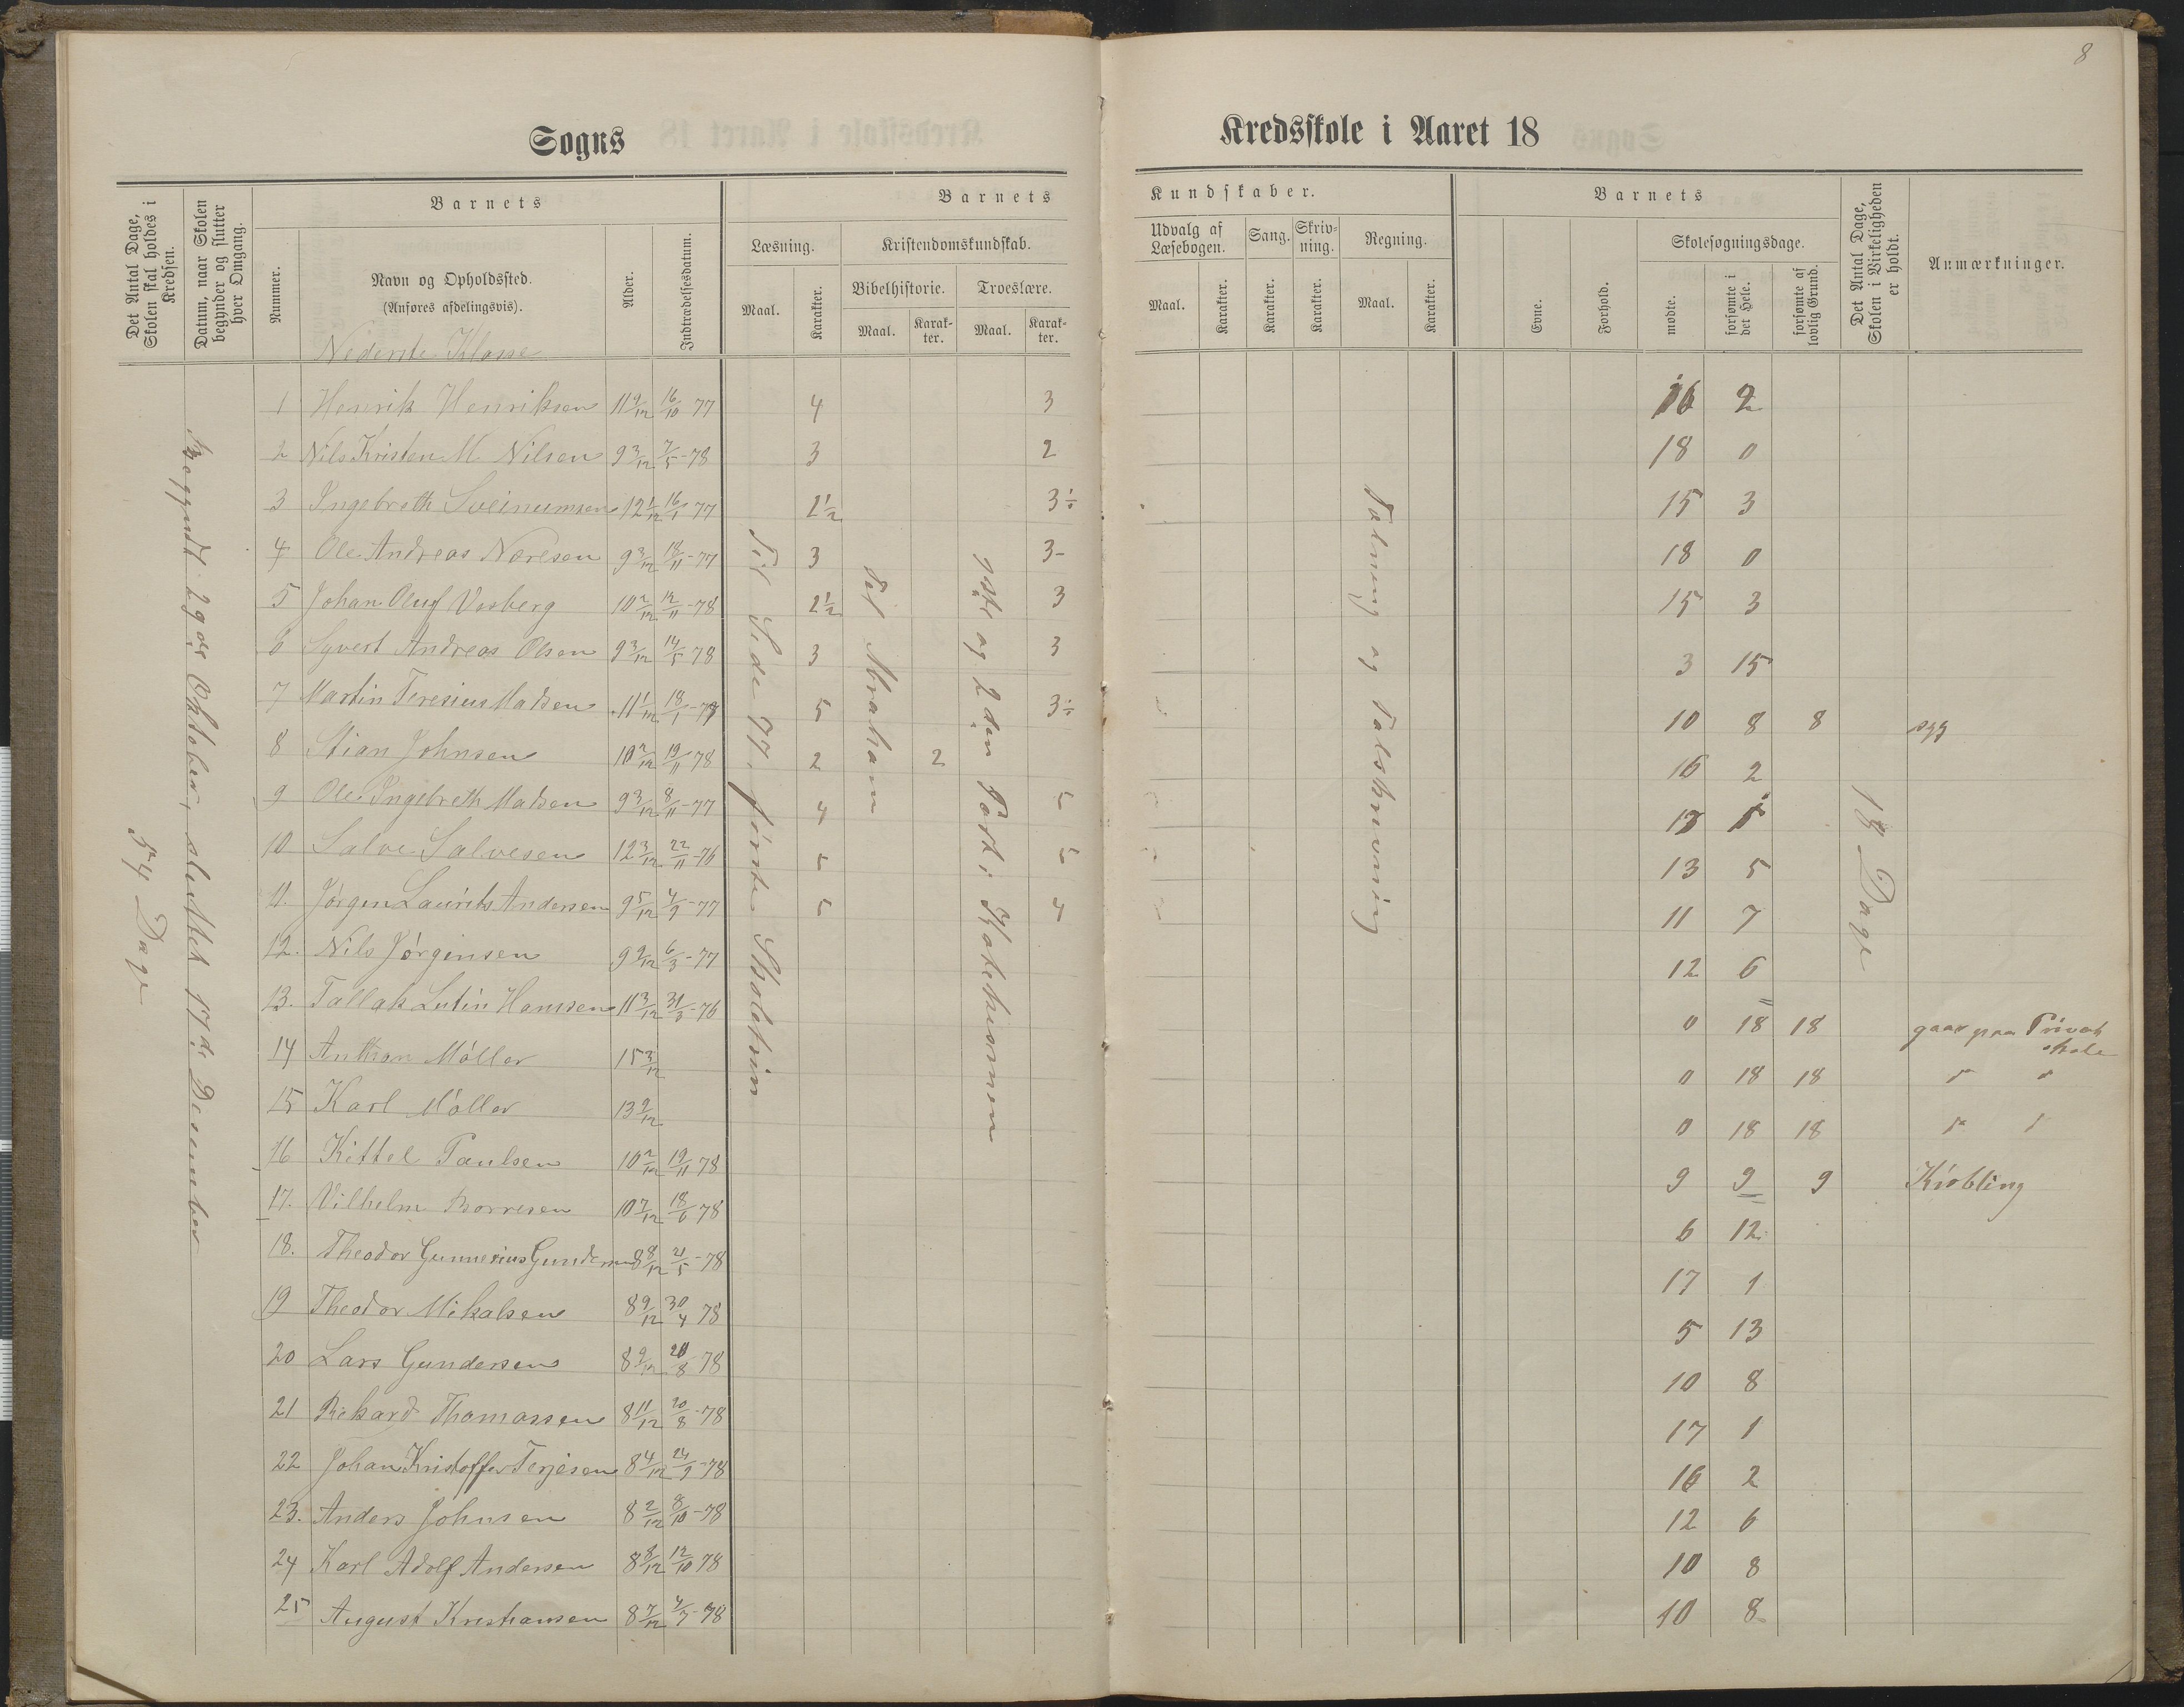 8
Sogns
Kredsskole i Aaret 18
Det Antal Dage, Skolen skal holdes i Kredsen.
Datum, naar Skolen begynder og slutter hver Omgang.
Barnets
Nummer.
Navn og Opholdssted.
(Anføres afdelingsvis).
Alder.
Indtrædelsesdatum.
Barnets
Læsning.
Maal.
Karakter.
Kristendomskundskab.
Bibelhistorie.
Maal.
Karakter.
Troeslære.
Maal.
Karakter.
Kundskaber.
Udvalg af Læsebogen.
Maal.
Karakter.
Sang.
Karakter.
Skrivning.
Karakter.
Regning.
Maal.
Karakter.
Barnets
Evne.
Forhold.
Skolesøgningsdage.
mødte.
forsømte i det Hele.
forsømte af lovlig Grund.
Det Antal Dage, Skolen i Virkeligheden er holdt.
Anmærkninger.
Nederste Klasse
54 Dage
Begyndt 29de Oktober, sluttet 17d. Desember
Til Side 77, første Skoletrin
Til Abraham
1ste og 2den Part i Katekismen
Talning og Talskrivning
18 Dage
1 Henrik Henriksen 11 9/12 16/10 77 4 3 16 2
2 Nils Kristen M. Nilsen 9 3/12 7/5-78 3 2 18 0
3 Ingebreth Sveinumsen 12 1/12 16/1 77 2½ 3÷ 15 3
4 Ole Andreas Næresen 9 3/12 18/11-77 3 3- 18 0
5 Johan Oluf Vosberg 10 2/12 12/11-78 2½ 3 15 3
6 Syvert Andreas Olsen 9 3/12 14/5 78 3 3 3 15
7 Martin Teresius Madsen 11 1/12 18/1-77 5 3÷ 10 8 8 syg
8 Stian Johnsen 10 2/12 19/11 78 2 2 16 2
9 Ole Ingebreth Madsen 9 3/12 8/11-77 4 5 17 1
10 Salve Salvesen 12 3/12 22/11-76 5 5 13 5
11. Jørgen Laurits Andersen 9 5/12 4/9-77 5 4 11 7
12. Nils Jørginsen 9 9/12 6/3-77 12 6
13. Tallak Hansen 11 3/12 31/3-76 0 18 18 gaar paa Privat skole
14 Anthon Møller 15 3/12 0 18 18 " "
15 Karl Møller 13 9/12 0 18 18 " "
16 Kittel Paulsen 10 2/12 19/11 78 9 9 9
17. Vilhelm Borresen 10 7/12 18/6 78 6 12
18. Theodor Gunnerius 8 8/12 21/5-78 17 1
19 Theodor Mikalsen 8 9/12 30/4 78 5 13
20 Lars Gundersen 8 9/12 20/8 78 10 8
21 Rikard Thomassen 8 11/12 20/8-78 17 1
22 Johan Kristoffer Terjesen 8 4/12 24/9-78 16 2
23. Anders Johnsen 8 2/12 8/10-78 12 6
24 Karl Adolf Andersen 8 8/12 12/10 78 10 8
25 August Kristiansen 8 7/12 4/7-78 10 8